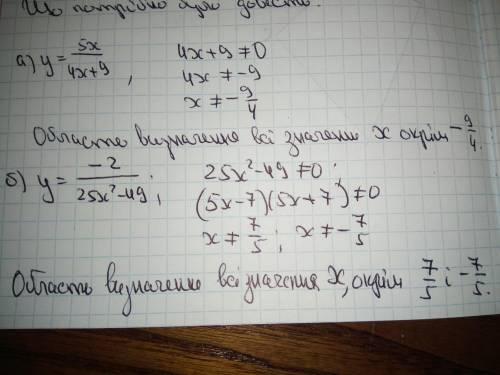 Що потрібно було довести.
а) y = 5x/4x+9, 4x+9 ≠ 0
4x ≠ -9
x ≠ -9/4
Область визначення всі значення x окрім -9/4.
б) y = -2/25x²-49; 25x²-49 ≠ 0;
(5x-7)(5x+7) ≠ 0
x ≠ 7/5; x ≠ -7/5
Область визначення всі значення x, окрім 7/5 і -7/5.